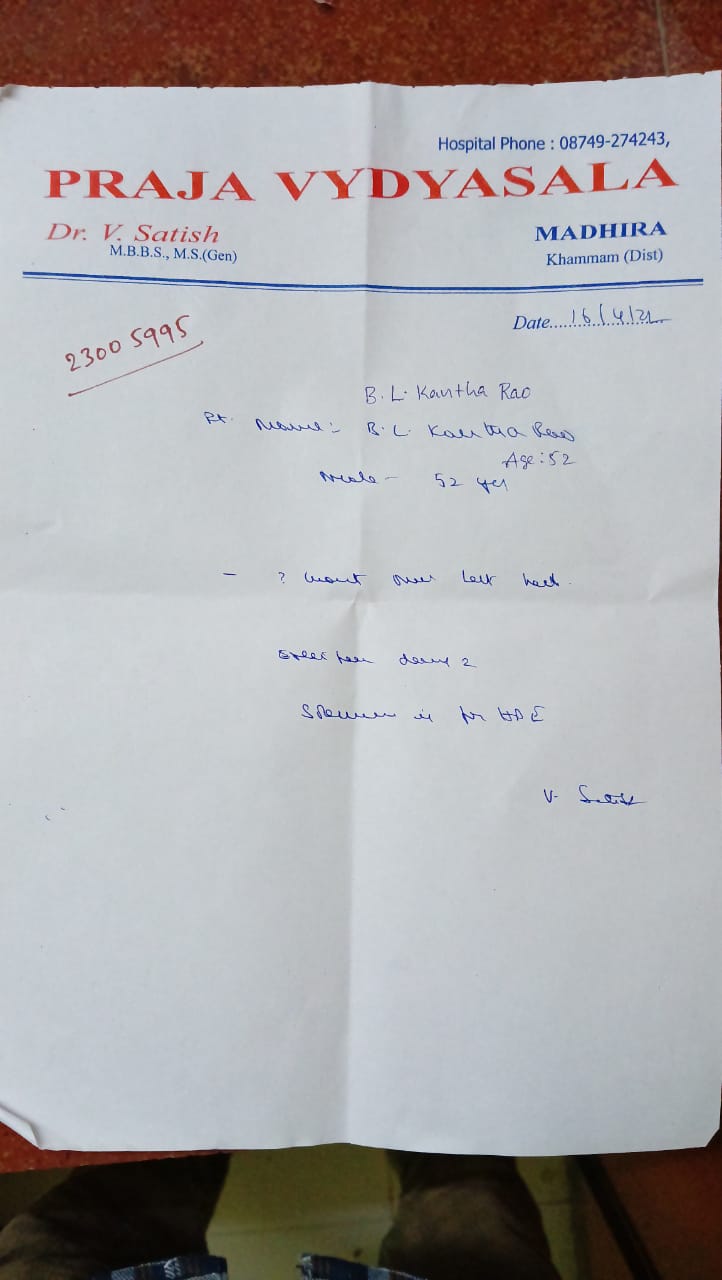 Hospital Phone : 08749-274243,
PRAJA VYDYASALA
Dr. V. Satish
M.B.B.S., M.S.(Gen)
MADHIRA
Khammam (Dist)
Date 16/4/21
23005995
B. L. Kantha Rao
Pt. Name:- B. L. Kantha Rao
Age: 52
Male - 52 yrs
- ? wart over left
done
is for HPE
V. Satish